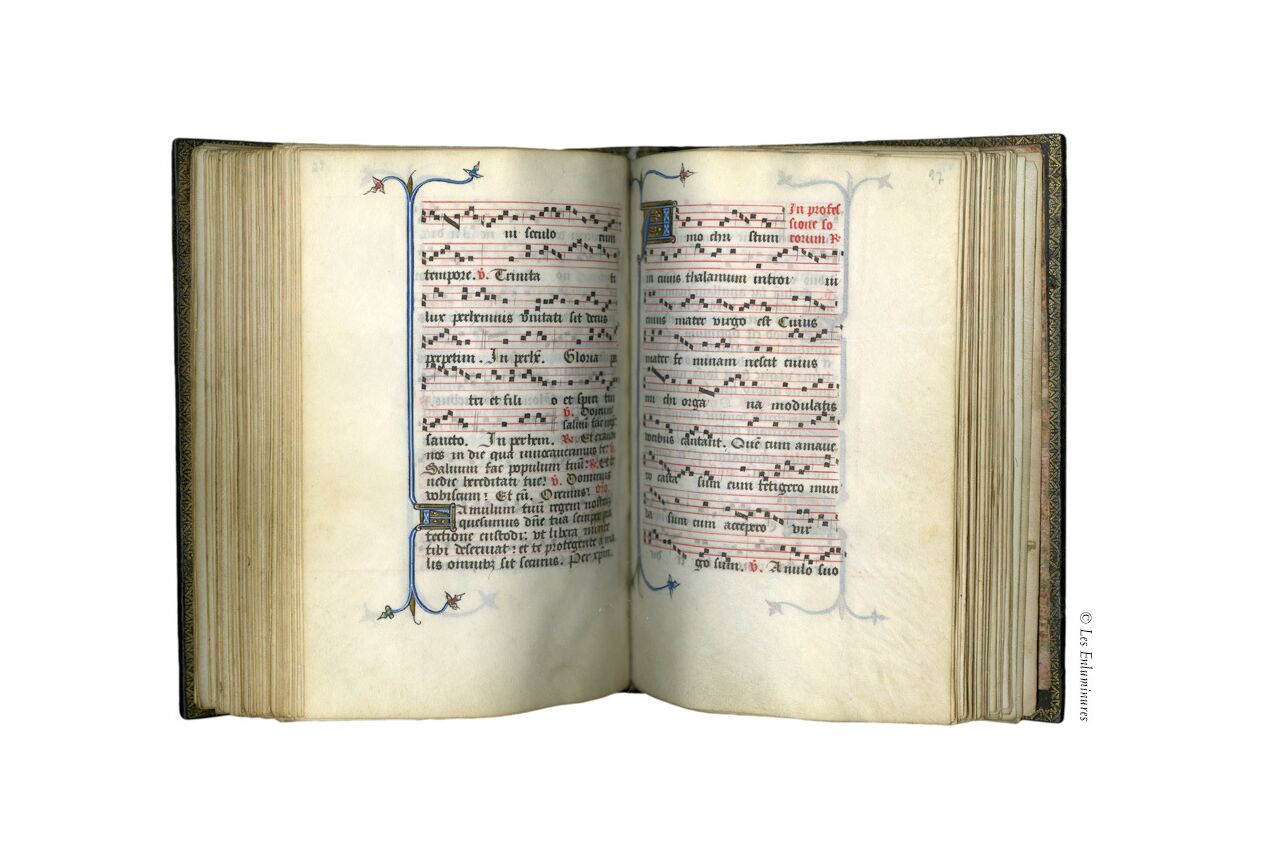 ni seculo cum
tempore. v. Trinita ti
lux perhennis vnitati sit decus
perpetim. In perhe. Gloria pa
tri et fili o et spiri tui
v. Domine
saluum fac rege
sancto. In perhen. R. Et exaudi
nos in die qua inuocauerimus te. v.
Saluum fac populum tuū. R. Et be
nedic hereditati tue. v. Dominus
vobiscum: Et cū. Oremus: orō
Famulum tuū regem nostrū
quesumus dn̄e tua semper pro
tectione custodi: vt libera mente
tibi deseruiat: et te protegente a ma
lis omnibz sit securus. Per xpm
97
In profes
sione so
rorum R
Amo chri stum
in cuius thalamum introi ui
cuius mater virgo est Cuius
mater fe minam nescit cuius
mi chi orga na modulatis
vocibus cantant. Quē cum amaue
ro casta sum cum tetigero mun
da sum cum accepero vir
go sum. v. Anulo suo
© Les Enluminures